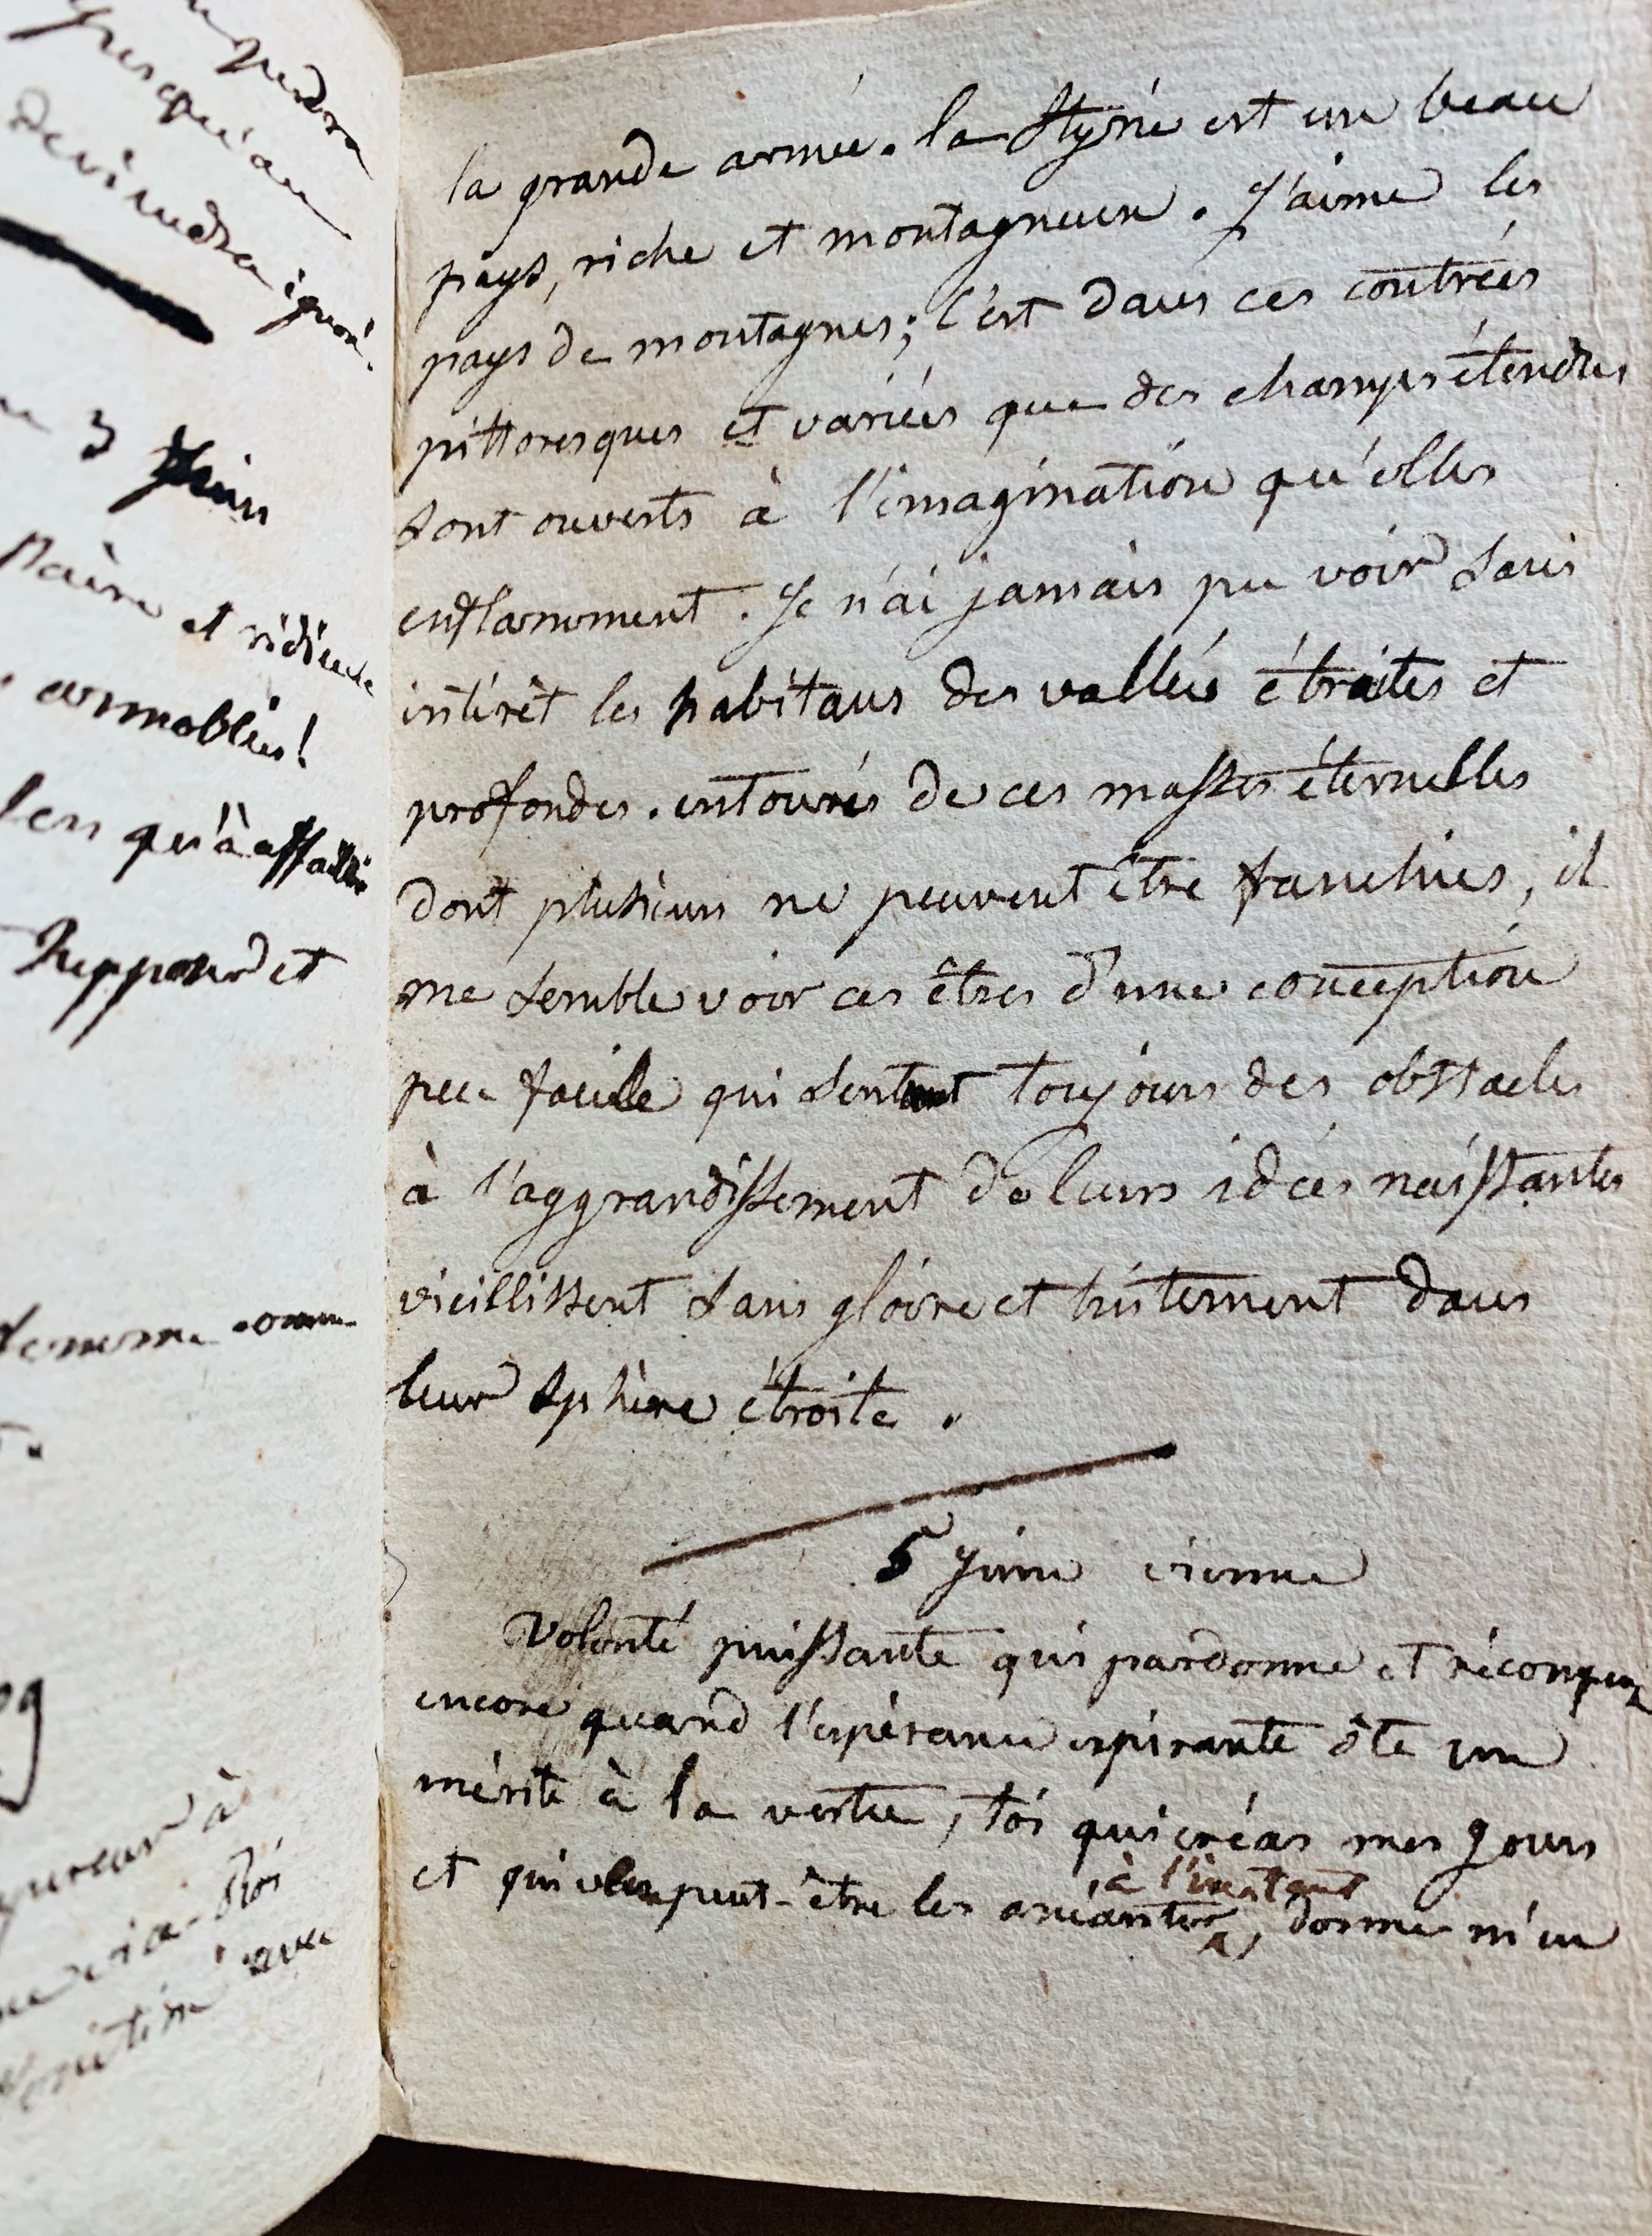 pedra
presqu'au
deviendra ignoré.
3 Juin
et ridicule
qu'à assaillir
et
comme
à
Roi
avec
la grande armée. la Styrie est un beau
pays, riche et montagneux. J'aime les
pays de montagnes; c'est dans ces contrées
pittoresques et variées que des champs étendus
sont ouverts à l'imagination qu'elles
enflamment. Je n'ai jamais pu voir sans
intérêt les habitans des vallées étroites et
profondes. entourés de ces masses éternelles
dont plusieurs ne peuvent être franchies, il
me semble voir ces êtres d'une conception
peu facile qui sentant toujours des obstacles
à l'aggrandissement de leurs idées naissantes
vieillissent sans gloire et tristement dans
leur sphère étroite.
5 Juin vienne
Volonté puissante qui pardonne et récompense
encore quand l'espérance expirante ôte un
mérite à la vertu, toi qui créas mes jours
à l'instant
et qui veux peut-être les anéantir, donne m'en